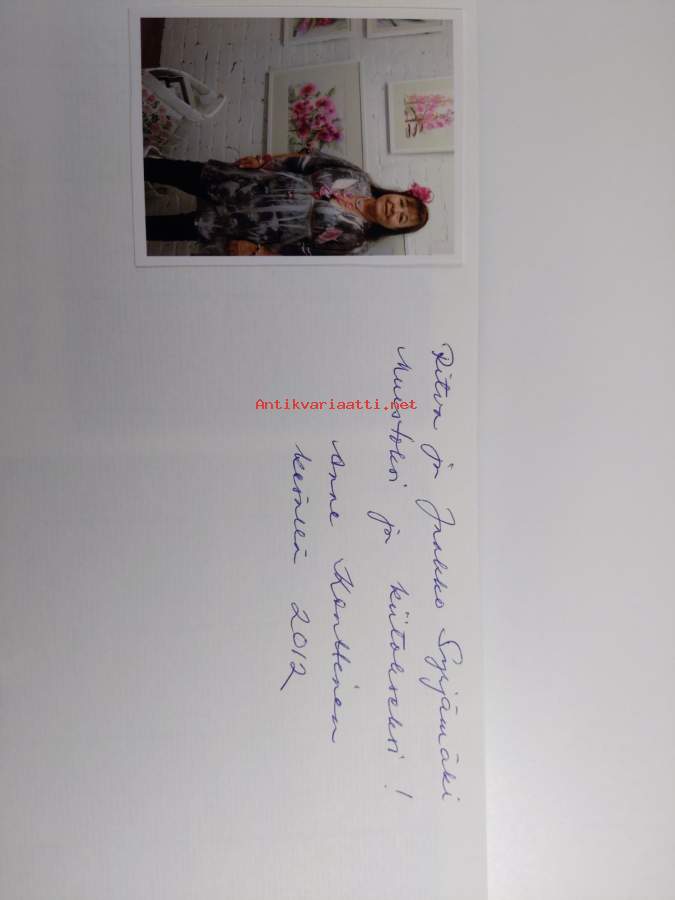 Ritva ja Jaakko Syrjämäki
Muistoksi ja kiitokseksi!
Anne Konttinen
kesällä 2012
Antikvariaatti.net